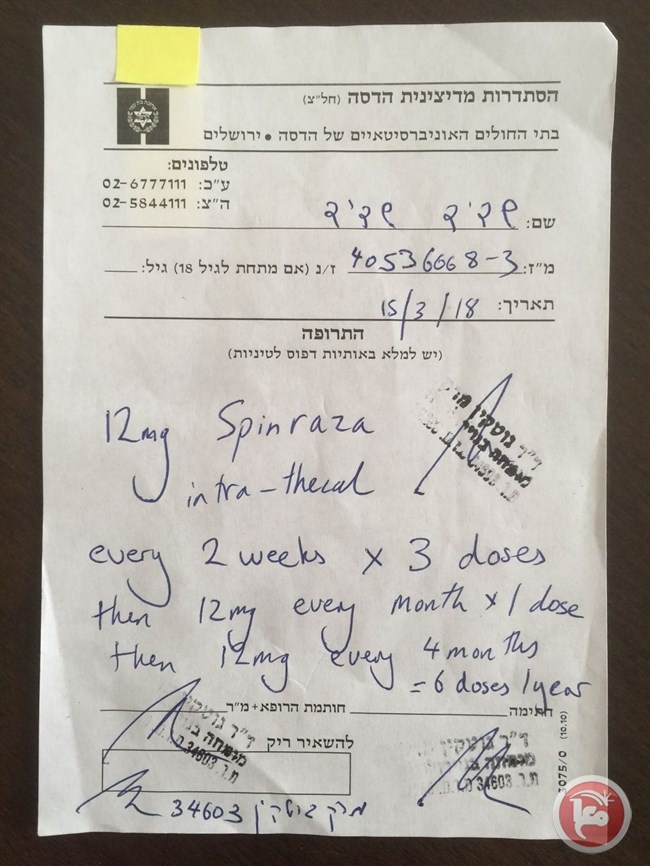 הסתדרות מדיצינית הדסה (חל"צ)
בתי החולים האוניברסיטאיים של הדסה • ירושלים
טלפונים:
ע"כ: 02-6777111
ה"צ: 02-5844111
שם:
מ"ז: 40536668-3 ז/נ (אם מתחת לגיל 18) גיל:
תאריך: 15/3/18
התרופה
(יש למלא באותיות דפוס לטיניות)
12mg Spinraza
intra-thecal
ד"ר גוטקין
every 2 weeks x 3 doses
then 12mg every month x 1 dose
then 12mg every 4 months
= 6 doses/year
חתימה חותמת הרופא + מ"ר
להשאיר ריק
ד"ר גוטקין
מ.ר. 34603
ד"ר גוטקין
מ.ר. 34603
מרק גוטקין 34603
3075/0 (10.10)